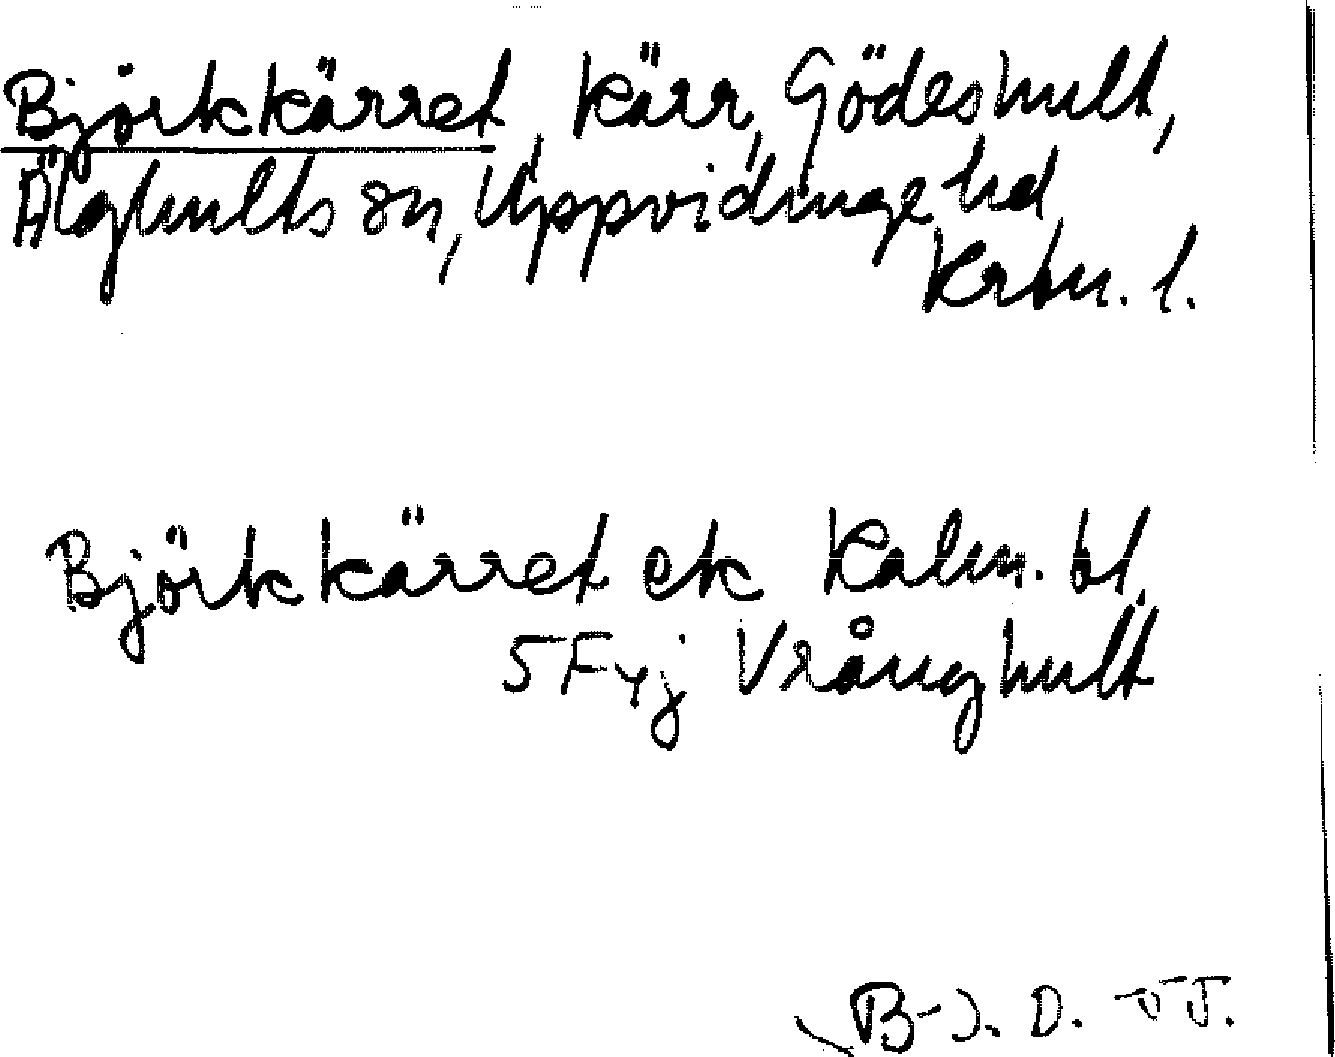 Björkkärret, kärr, Gödeshult,
Älghults sn, Uppvidinge hd,
Krbn. l.
Björkkärret ek Kalm. bl,
5Fyj Vrånghult
B-J. D.